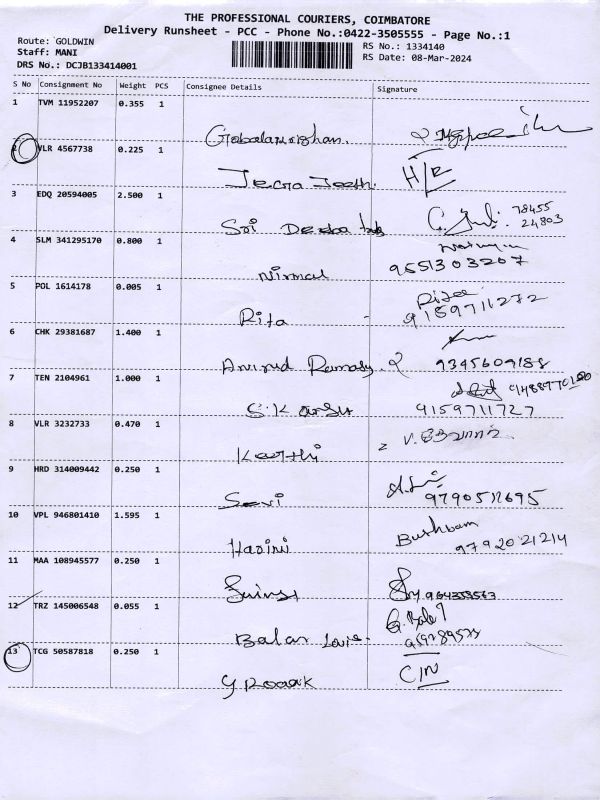 THE PROFESSIONAL COURIERS, COIMBATORE
Delivery Runsheet - PCC - Phone No.:0422-3505555 - Page No.:1
Route: GOLDWIN
Staff: MANI
DRS No.: DCJB133414001
RS No.: 1334140
RS Date: 08-Mar-2024
S No Consignment No Weight PCS Consignee Details Signature
1 TVM 11952207 0.355 1
Gobalakrishnan.
2 VLR 4567738 0.225 1
H/R
3 EDQ 20594005 2.500 1
Sri Deeba 78455
24803
4 SLM 341295170 0.800 1
Nirmal 9551303207
5 POL 1614178 0.005 1
Rita
Rita 9159711272
6 CHK 29381687 1.400 1
Aravind Ramasy. 9345609188
7 TEN 2104961 1.000 1
S.K 9159711727
8 VLR 3232733 0.470 1
Karthi
9 HRD 314009442 0.250 1
Sevi 9790511695
10 VPL 946801410 1.595 1
Harini 9792021214
11 MAA 108945577 0.250 1
12 TRZ 145006548 0.055 1
Balan
13 TCG 50587818 0.250 1
C/N